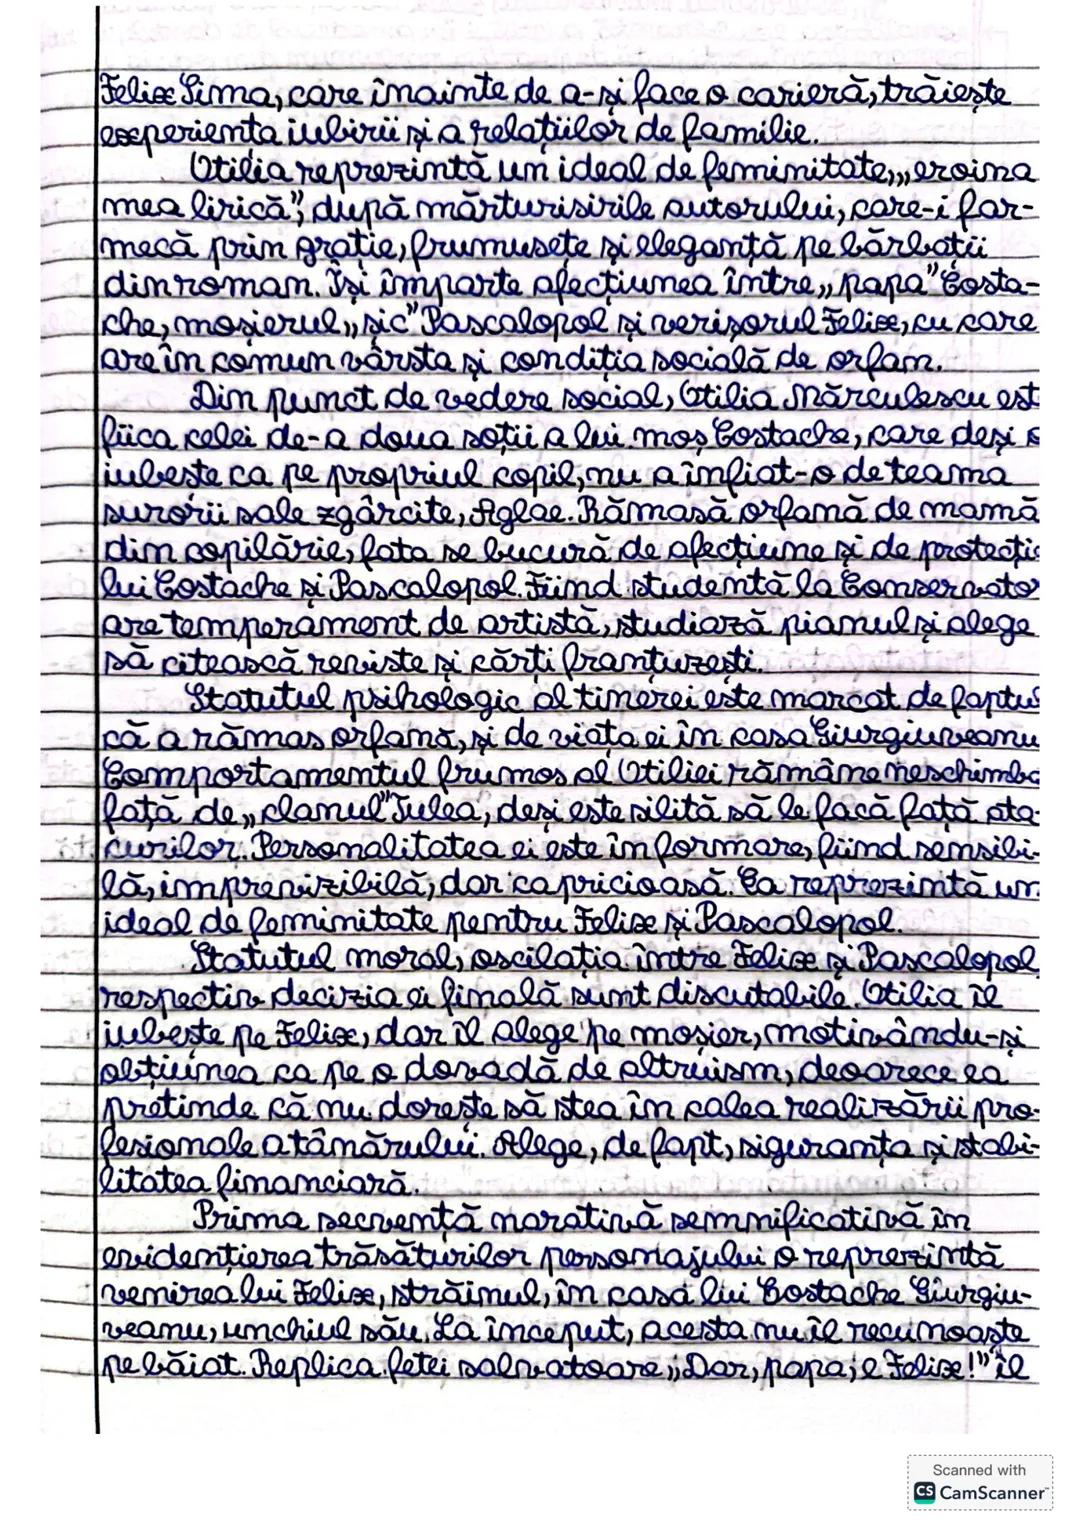 Felix Sima, care înainte de a-și face o carieră, trăiește
experiența iubirii și a relațiilor de familie.
Otilia reprezintă un ideal de feminitate, „eroina
mea lirică", după mărturisirile autorului, care-i far-
mecă prin grație, frumusețe și eleganță pe bărbații
din roman. Își împarte afecțiunea între „papa" Costa-
che, moșierul „șic" Pascalopol și verișorul Felix, cu care
are în comun vârsta și condiția socială de orfan.
Din punct de vedere social, Otilia Mărculescu est
fiica celei de-a doua soții a lui moș Costache, care deși o
iubește ca pe propriul copil, nu a înfiat-o de teama
surorii sale zgârcite, Aglae. Rămasă orfană de mamă
din copilărie, fata se bucură de afecțiune și de protecți
lui Costache și Pascalopol. Fiind studentă la Conservato
are temperament de artistă, studiază pianul și alege
să citească reviste și cărți franțuzești.
Statutul psihologic al tinerei este marcat de faptul
că a rămas orfană, și de viața ei în casa Giurgiuveanu
Comportamentul frumos al Otiliei rămâne neschimba
față de „clanul" Tulea, deși este silită să le facă față ata-
curilor. Personalitatea ei este în formare, fiind sensibi-
lă, imprevizibilă, dar capricioasă. Ea reprezintă un
ideal de feminitate pentru Felix și Pascalopol.
Statutul moral, oscilația între Felix și Pascalopol,
respectiv decizia ei finală sunt discutabile. Otilia îl
iubește pe Felix, dar îl alege pe moșier, motivându-și
obțiunea ca pe o dovadă de altruism, deoarece ea
pretinde că nu dorește să stea în calea realizării pro-
fesionale a tânărului. Alege, de fapt, siguranța și stabi-
litatea financiară.
Prima secvență narativă semnificativă în
evidențierea trăsăturilor personajului o reprezintă
venirea lui Felix, străinul, în casa lui Costache Giurgiu-
veanu, unchiul său. La început, acesta nu îl recunoaște
pe băiat. Replica fetei salvatoare „Dar, papa, e Felix!" îl
Scanned with
CS CamScanner